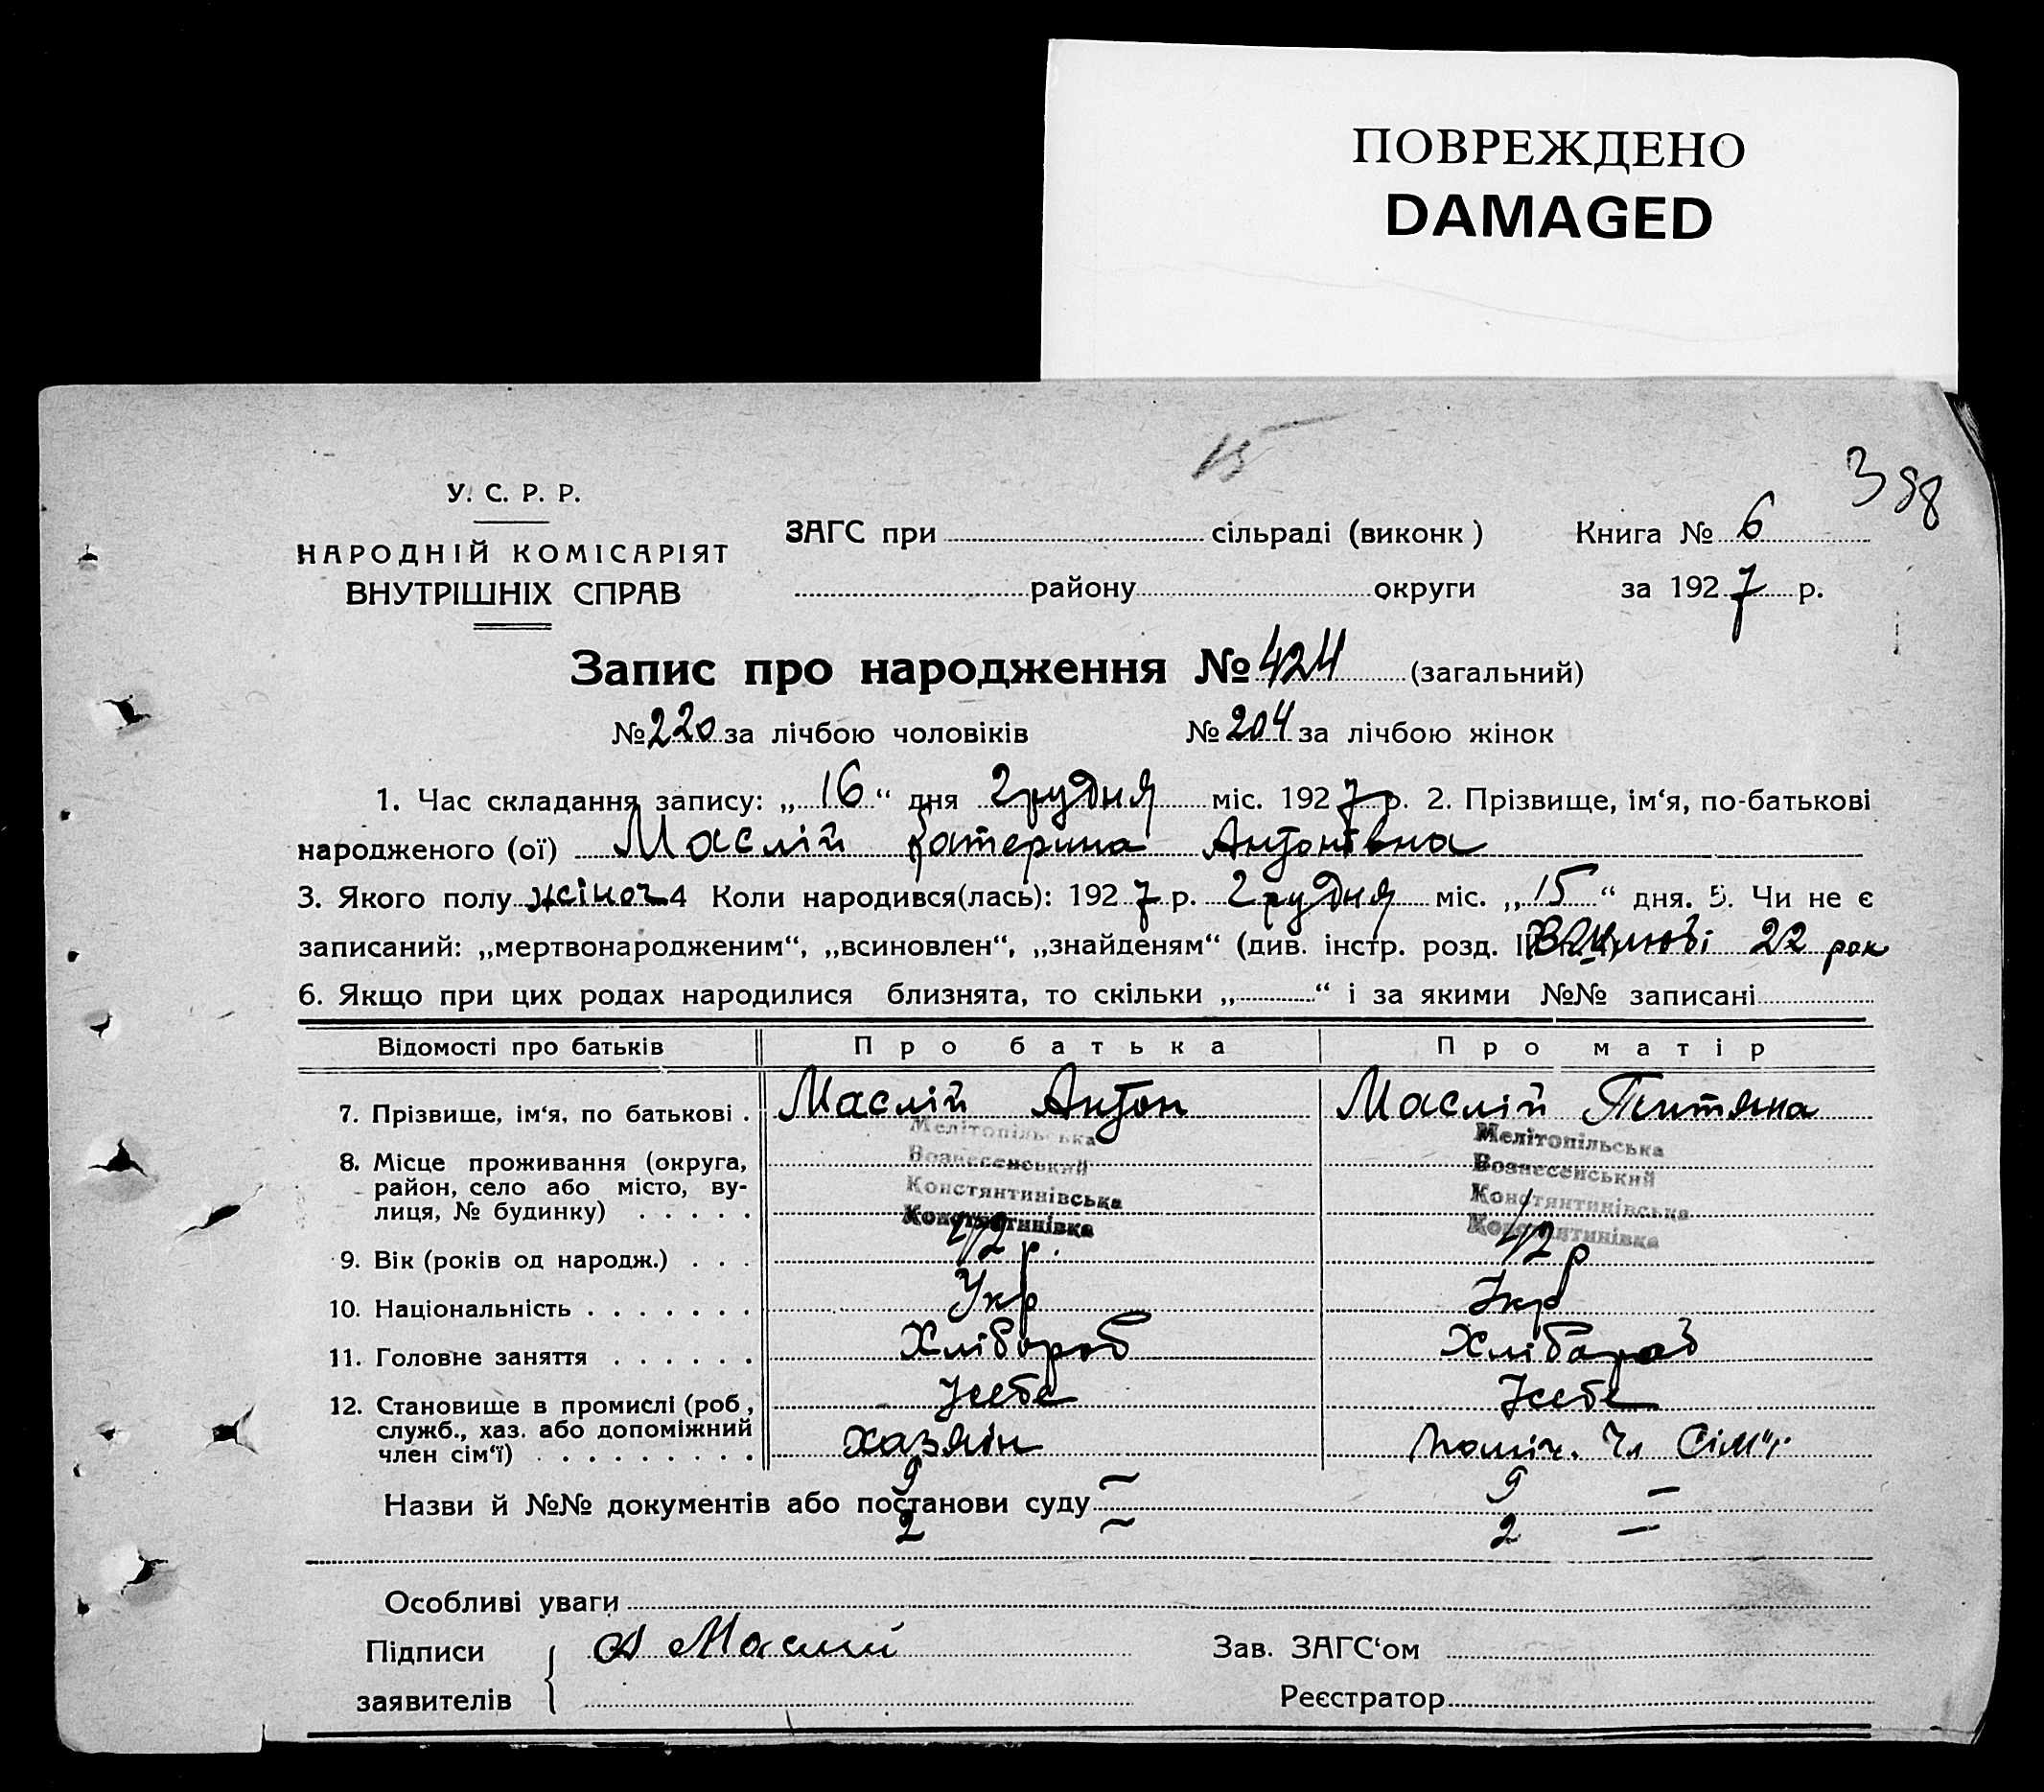 ПОВРЕЖДЕНО
DAMAGED
15
388
У. С. Р. Р.
НАРОДНІЙ КОМІСАРІЯТ
ВНУТРІШНІХ СПРАВ
ЗАГС при сільраді (виконк) Книга № 6
району округи за 1927 р.
Запис про народження № 424 (загальний)
№ 220 за лічбою чоловіків № 204 за лічбою жінок
1. Час складання запису: „16“ дня Грудня міс. 1927 р. 2. Прізвище, ім‘я, по-батькові
народженого (ої) Маслій Катерина Антонівна
3. Якого полу жіноч 4 Коли народився(лась): 1927 р. Грудня міс. „15“ дня. 5. Чи не є
записаний: „мертвонародженим“, „всиновлен“, „знайденям“ (див. інстр. розд. В шлюбі 22 рок
6. Якщо при цих родах народилися близнята, то скільки „ “ і за якими №№ записані
Відомості про батьків Про батька Про матір
7. Прізвище, ім‘я, по батькові . Маслій Антон Маслій Титяна
8. Місце проживання (округа, район, село або місто, вулиця, № будинку) . . . . .
Мелітопільська Мелітопільська
Вознесенський Вознесенський
Констянтинівська Констянтинівська
Констянтинівка Констянтинівка
9. Вік (років од народж.) . . . 42 р. 42 р
10. Національність . . . . . . . Укр Укр
11. Головне заняття . . . . . . Хлібороб Хлібороб
12. Становище в промислі (роб, У себе У себе
служб., хаз. або допоміжний
член сім‘ї) . . . . . . . . . Хазяїн поміч. Чл Сім"ї
9 — 9 —
Назви й №№ документів або постанови суду
2 — 2 —
Особливі уваги
Підписи А Маслий Зав. ЗАГС‘ом
заявителів Реєстратор